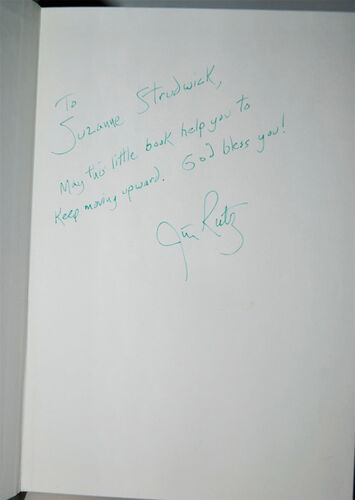 To
Suzanne Strudwick,
May this little book help you to
Keep moving upward. God bless you!
Jim Rutz